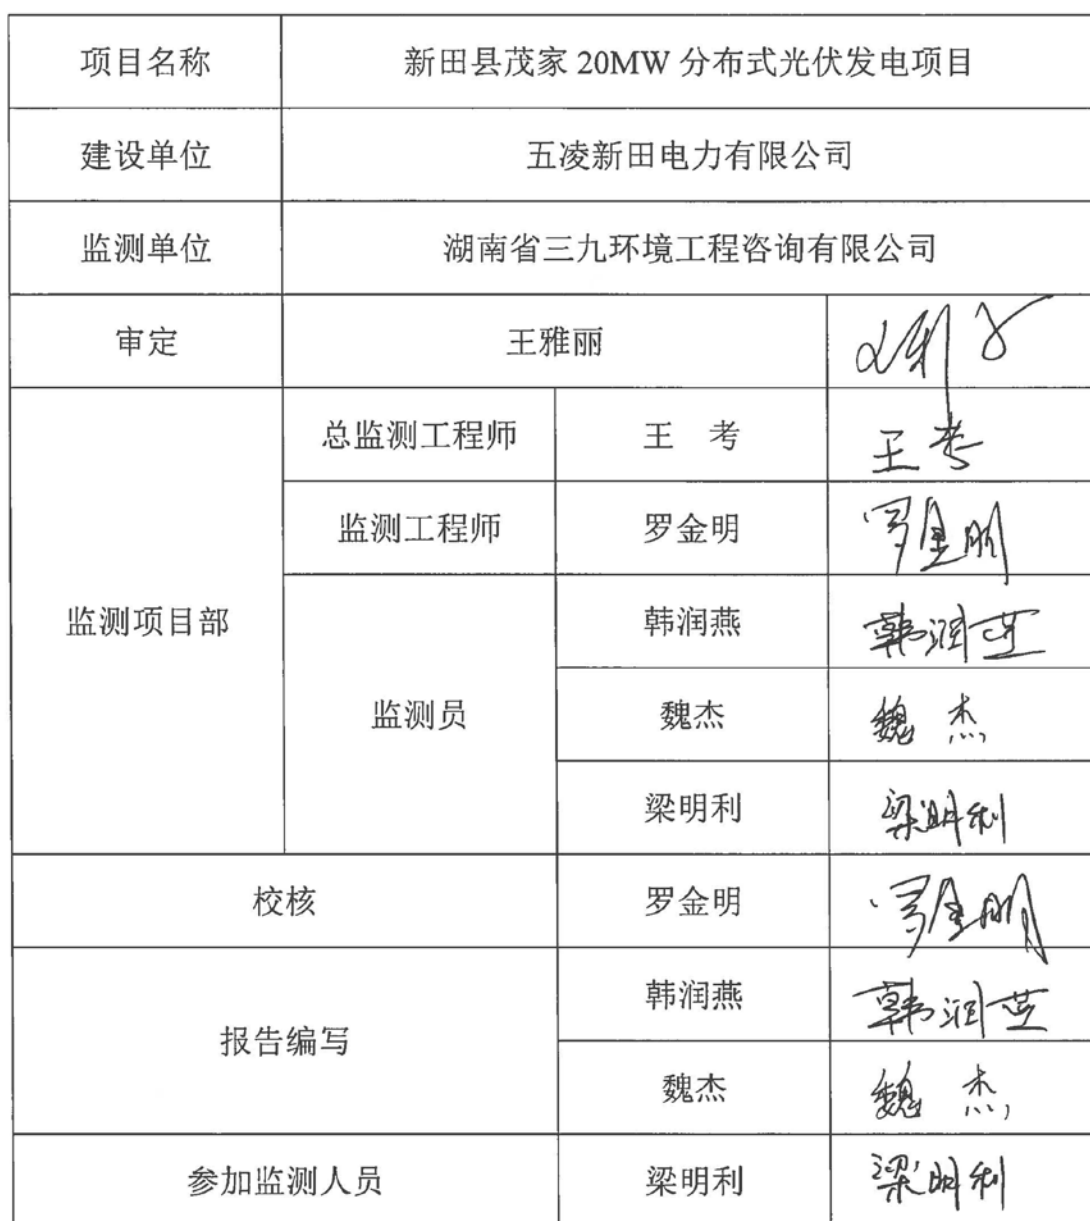 项目名称 新田县茂家 20MW 分布式光伏发电项目
建设单位 五凌新田电力有限公司
监测单位 湖南省三九环境工程咨询有限公司
审定 王雅丽
总监测工程师 王 考 王考
监测工程师 罗金明 罗金明
监测项目部
韩润燕 韩润燕
监测员 魏杰 魏杰
梁明利 梁明利
校核 罗金明 罗金明
韩润燕 韩润燕
报告编写
魏杰 魏杰
参加监测人员 梁明利 梁明利